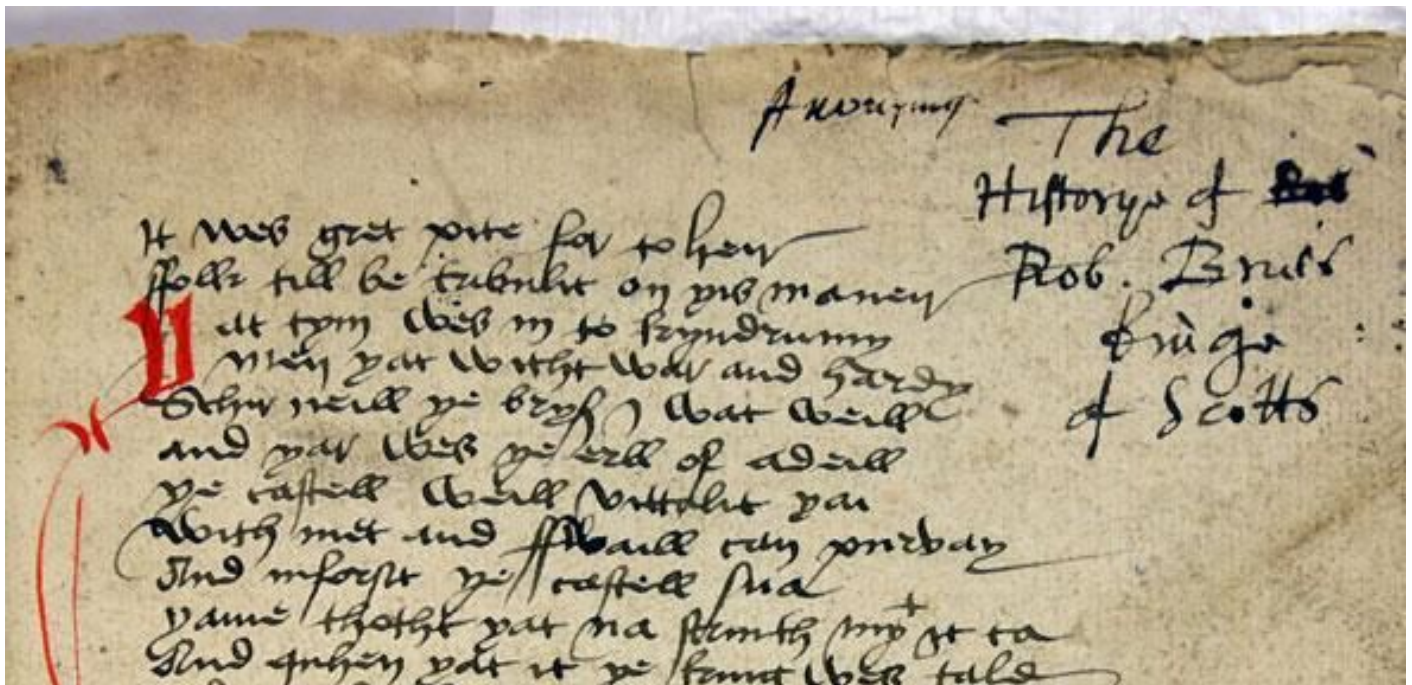 Anonymus
The
Historye of
Rob. Bruis
Kinge
of Scotts
It wes gret pite for to heir
ffolk till be trubulit on yis maneir
Yat tym wes in to kyndrumy
Men yat wicht war and hardy
Schir neill ye bryß I wat weill
and yar wes ye erll of adeill
ye castell weill vittalit yai
With met and ffwaill can purvay
And inforsit ye castell sua
yaim thotht yat na strinth mycht it ta
And quhen yat it ye king wes tald